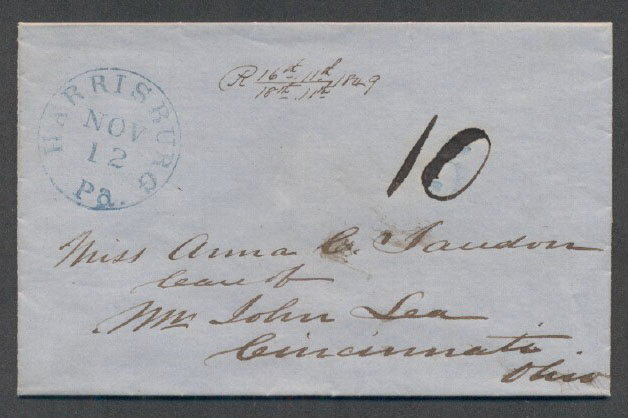 HARRISBURG Pa.
NOV
12
R 16th 11th 1849
18th 11th
10
Miss Anna C. Saudon
Care of
Mr John Lea
Cincinnati
Ohio